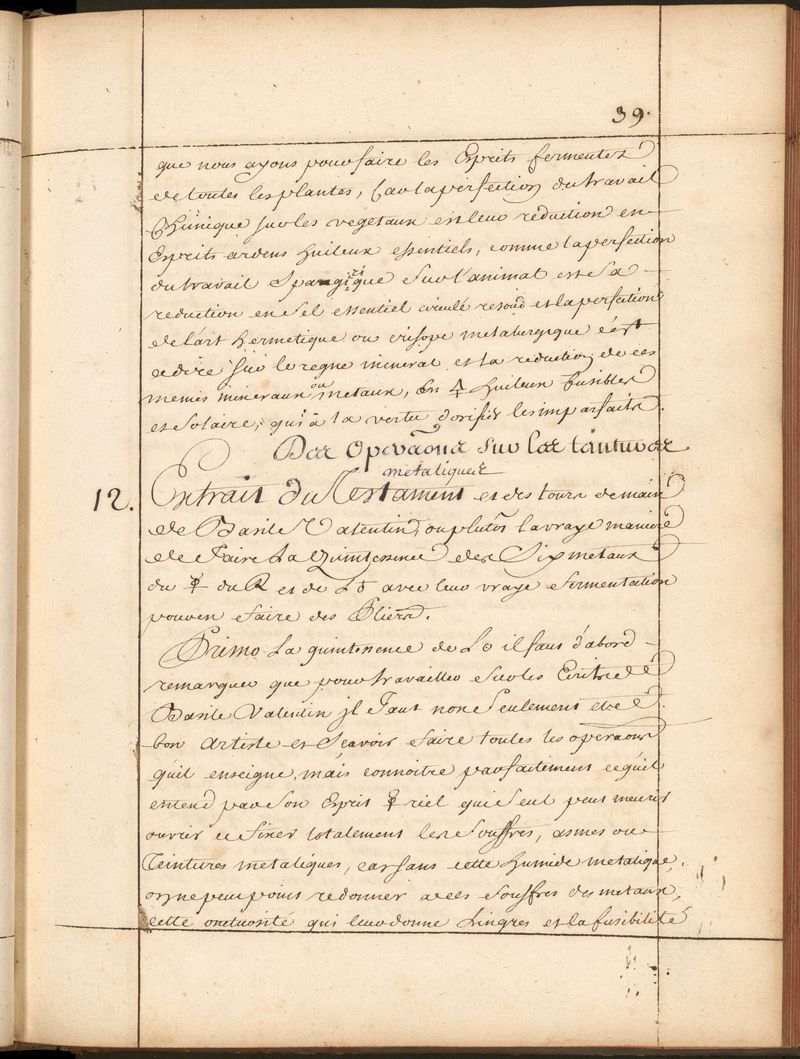 39.
que nous ayons pour faire les Esprits fermentés
de toutes les plantes, Car la perfection du travail
Chimique sur les vegetaux est leur reduction en
Esprits ardens huileux essentiels, comme la perfection
du travail Spargirique sur l'animal est sa
reduction en sel essentiel circulé resoud et la perfection
de l'art hermetique ou crisope metalurgique c'est
a dire sur le regne mineral est la reduction de ces
memes mineraux ou metaux, en 🜍 huileux fusibles
et solaire, qui à la vertu d'orifier les imparfaits.
Des Operaõns sur les teintures
metaliques
12. Extrait du Testament et des tours de main
de Basile Valentin, ou plutôt la vraye maniere
de Faire La Quintessence des Six metaux
du ☿ du R et de L♁ avec leur vraye fermentation
pour en faire des Elixirs.
Primo La quintessence de Lo il faut d'abord
remarquer que pour travailler sur les Ecrits de
Basile Valentin jl Faut non seulement etre
bon Artiste et sçavoir faire toutes les operaõns
qu'il enseigne, mais connoitre parfaitement ce qu'il
entend par son Esprit ☿riel qui seul peut meurir
ouvrir et fixer totalement les souffres, asmes ou
Teintures metaliques, car sans cette humide metalique,
on ne peut point redonner a ces souffres des metaux,
cette onctuosité qui leur donne L'ingres et la fusibilité